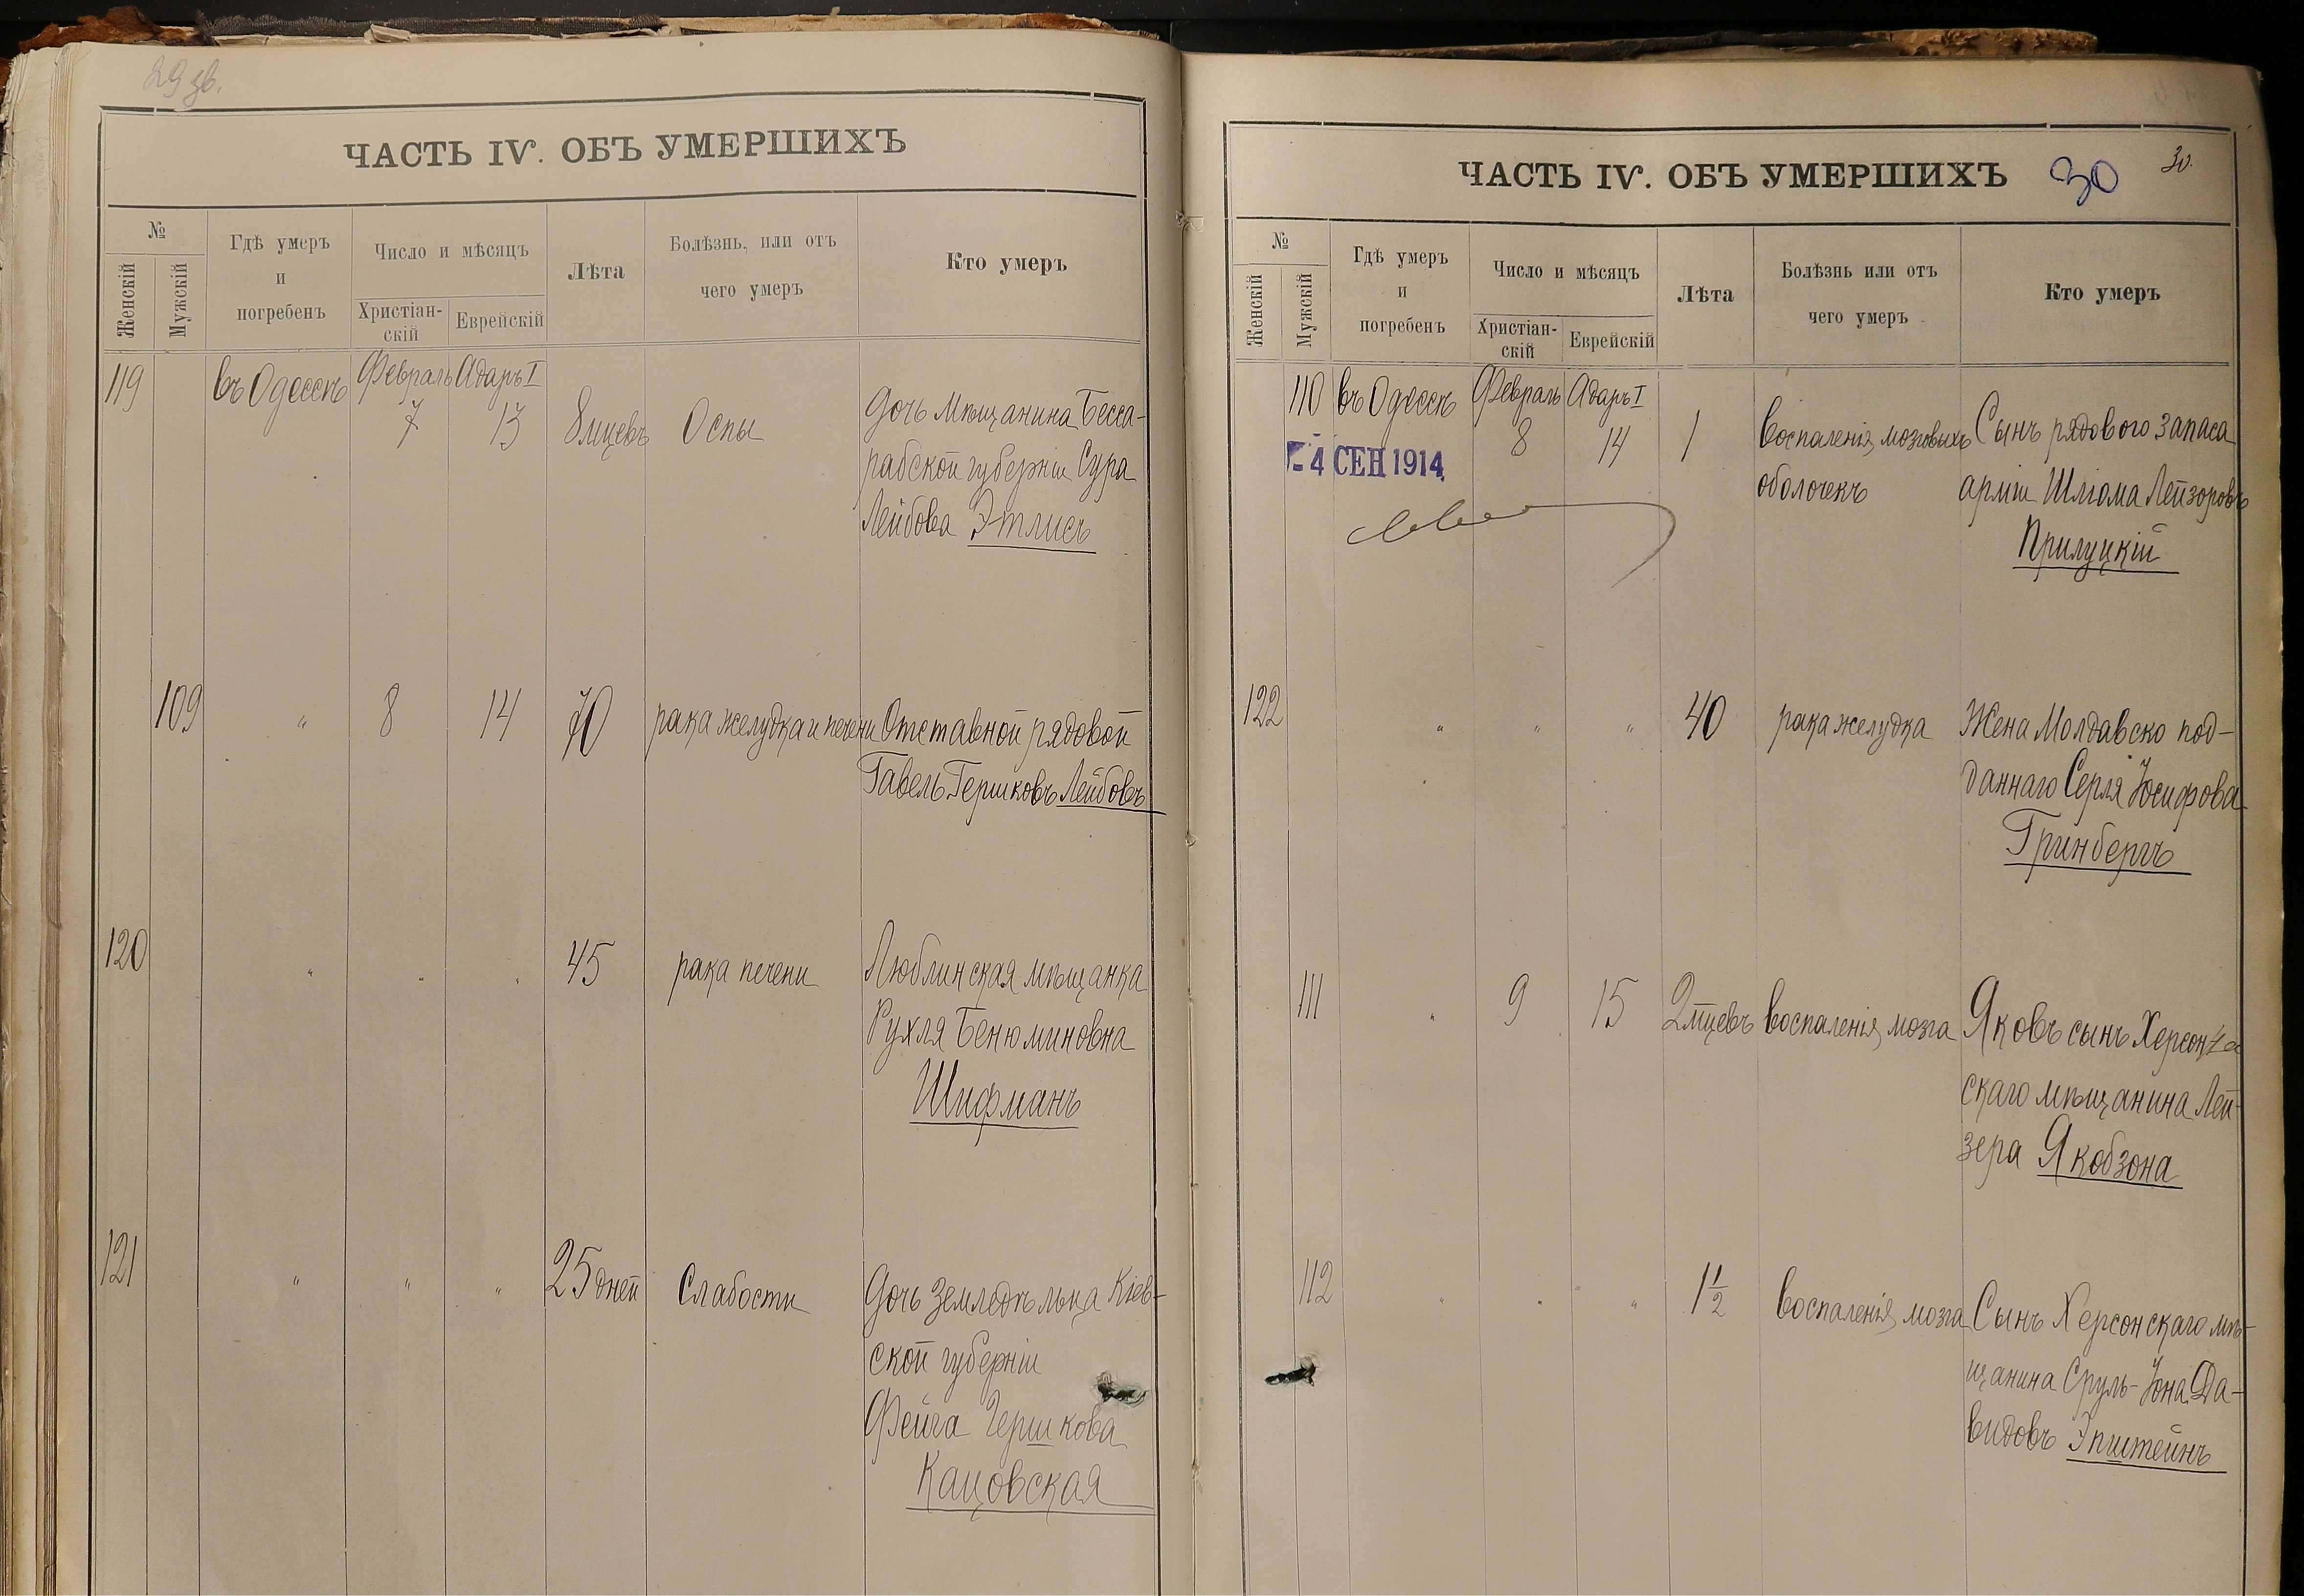 29 об.
ЧАСТЬ IV. ОБЪ УМЕРШИХЪ
№
Женскій
Мужскій
Гдѣ умеръ
и
погребенъ
Число и мѣсяцъ
Христіан-
скій
Еврейскій
Лѣта
Болѣзнь, или отъ
чего умеръ
Кто умеръ
119 въ Одессѣ Февраль Адаръ I
7 13 8 мцевъ Оспы Дочь Мѣщанина Бесса-
рабской губерніи Сура
Лейбова Этлисъ
109 " 8 14 70 рака желудка и печени Отставной рядовой
Гавель Гершковъ Лейбовъ
120 " " " 45 рака печени Люблинская мѣщанка
Рухля Бенюминовна
Шифманъ
121 " " " 25 дней Слабости Дочь Земледѣльца Кіев-
ской губерніи
Фейга Гершкова
Кацовская
ЧАСТЬ IV. ОБЪ УМЕРШИХЪ 30 30.
№
Женскій
Мужскій
Гдѣ умеръ
и
погребенъ
Число и мѣсяцъ
Христіан-
скій
Еврейскій
Лѣта
Болѣзнь или отъ
чего умеръ
Кто умеръ
110 въ Одессѣ Февраль Адаръ I
8 14 1 Воспаленія мозговыхъ Сынъ рядового запаса
- 4 СЕН 1914
оболочекъ арміи Шліома Лейзоровъ
Прилуцкій
122 " " " 40 рака желудка Жена Молдавско под-
даннаго Серля Іосифова
Гринбергъ
111 " 9 15 2 мцевъ Воспаленія мозга Яковъ сынъ Херсон-
скаго мѣщанина Лей-
зера Якобзона
112 " " " 1 1/2 Воспаленія мозга Сынъ Херсонскаго мѣ-
щанина Сруль-Іона Да-
видовъ Эпштейнъ